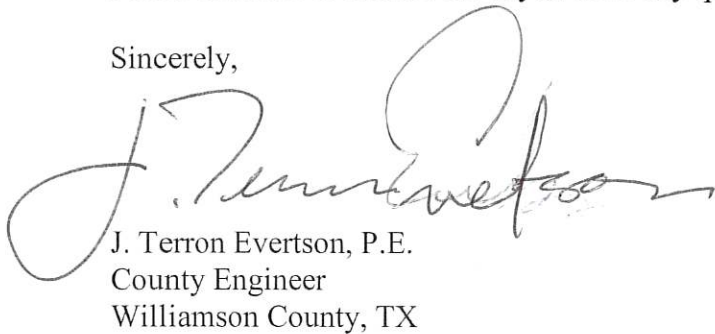 Sincerely,
J. Terron Evertson
J. Terron Evertson, P.E.
County Engineer
Williamson County, TX